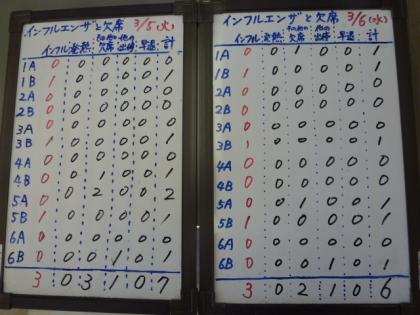 インフルエンザと欠席 3/5(火)
インフル 発熱 その他の欠席 他の出停 早退 計
1A 0 0 0 0 0 0
1B 1 0 0 0 0 1
2A 0 0 0 0 0 0
2B 0 0 0 0 0 0
3A 0 0 0 0 0 0
3B 1 0 0 0 0 1
4A 0 0 0 0 0 0
4B 0 0 1 0 0 1
5A 0 0 2 0 0 2
5B 1 0 0 0 0 1
6A 0 0 0 0 0 0
6B 0 0 0 1 0 1
3 0 3 1 0 7
インフルエンザと欠席 3/6(水)
インフル 発熱 その他の欠席 他の出停 早退 計
1A 0 0 1 0 0 1
1B 1 0 0 0 0 1
2A 0 0 0 0 0 0
2B 0 0 0 0 0 0
3A 0 0 0 0 0 0
3B 1 0 0 0 0 1
4A 0 0 0 0 0 0
4B 0 0 0 0 0 0
5A 0 0 1 0 0 1
5B 1 0 0 0 0 1
6A 0 0 0 0 0 0
6B 0 0 0 1 0 1
3 0 2 1 0 6